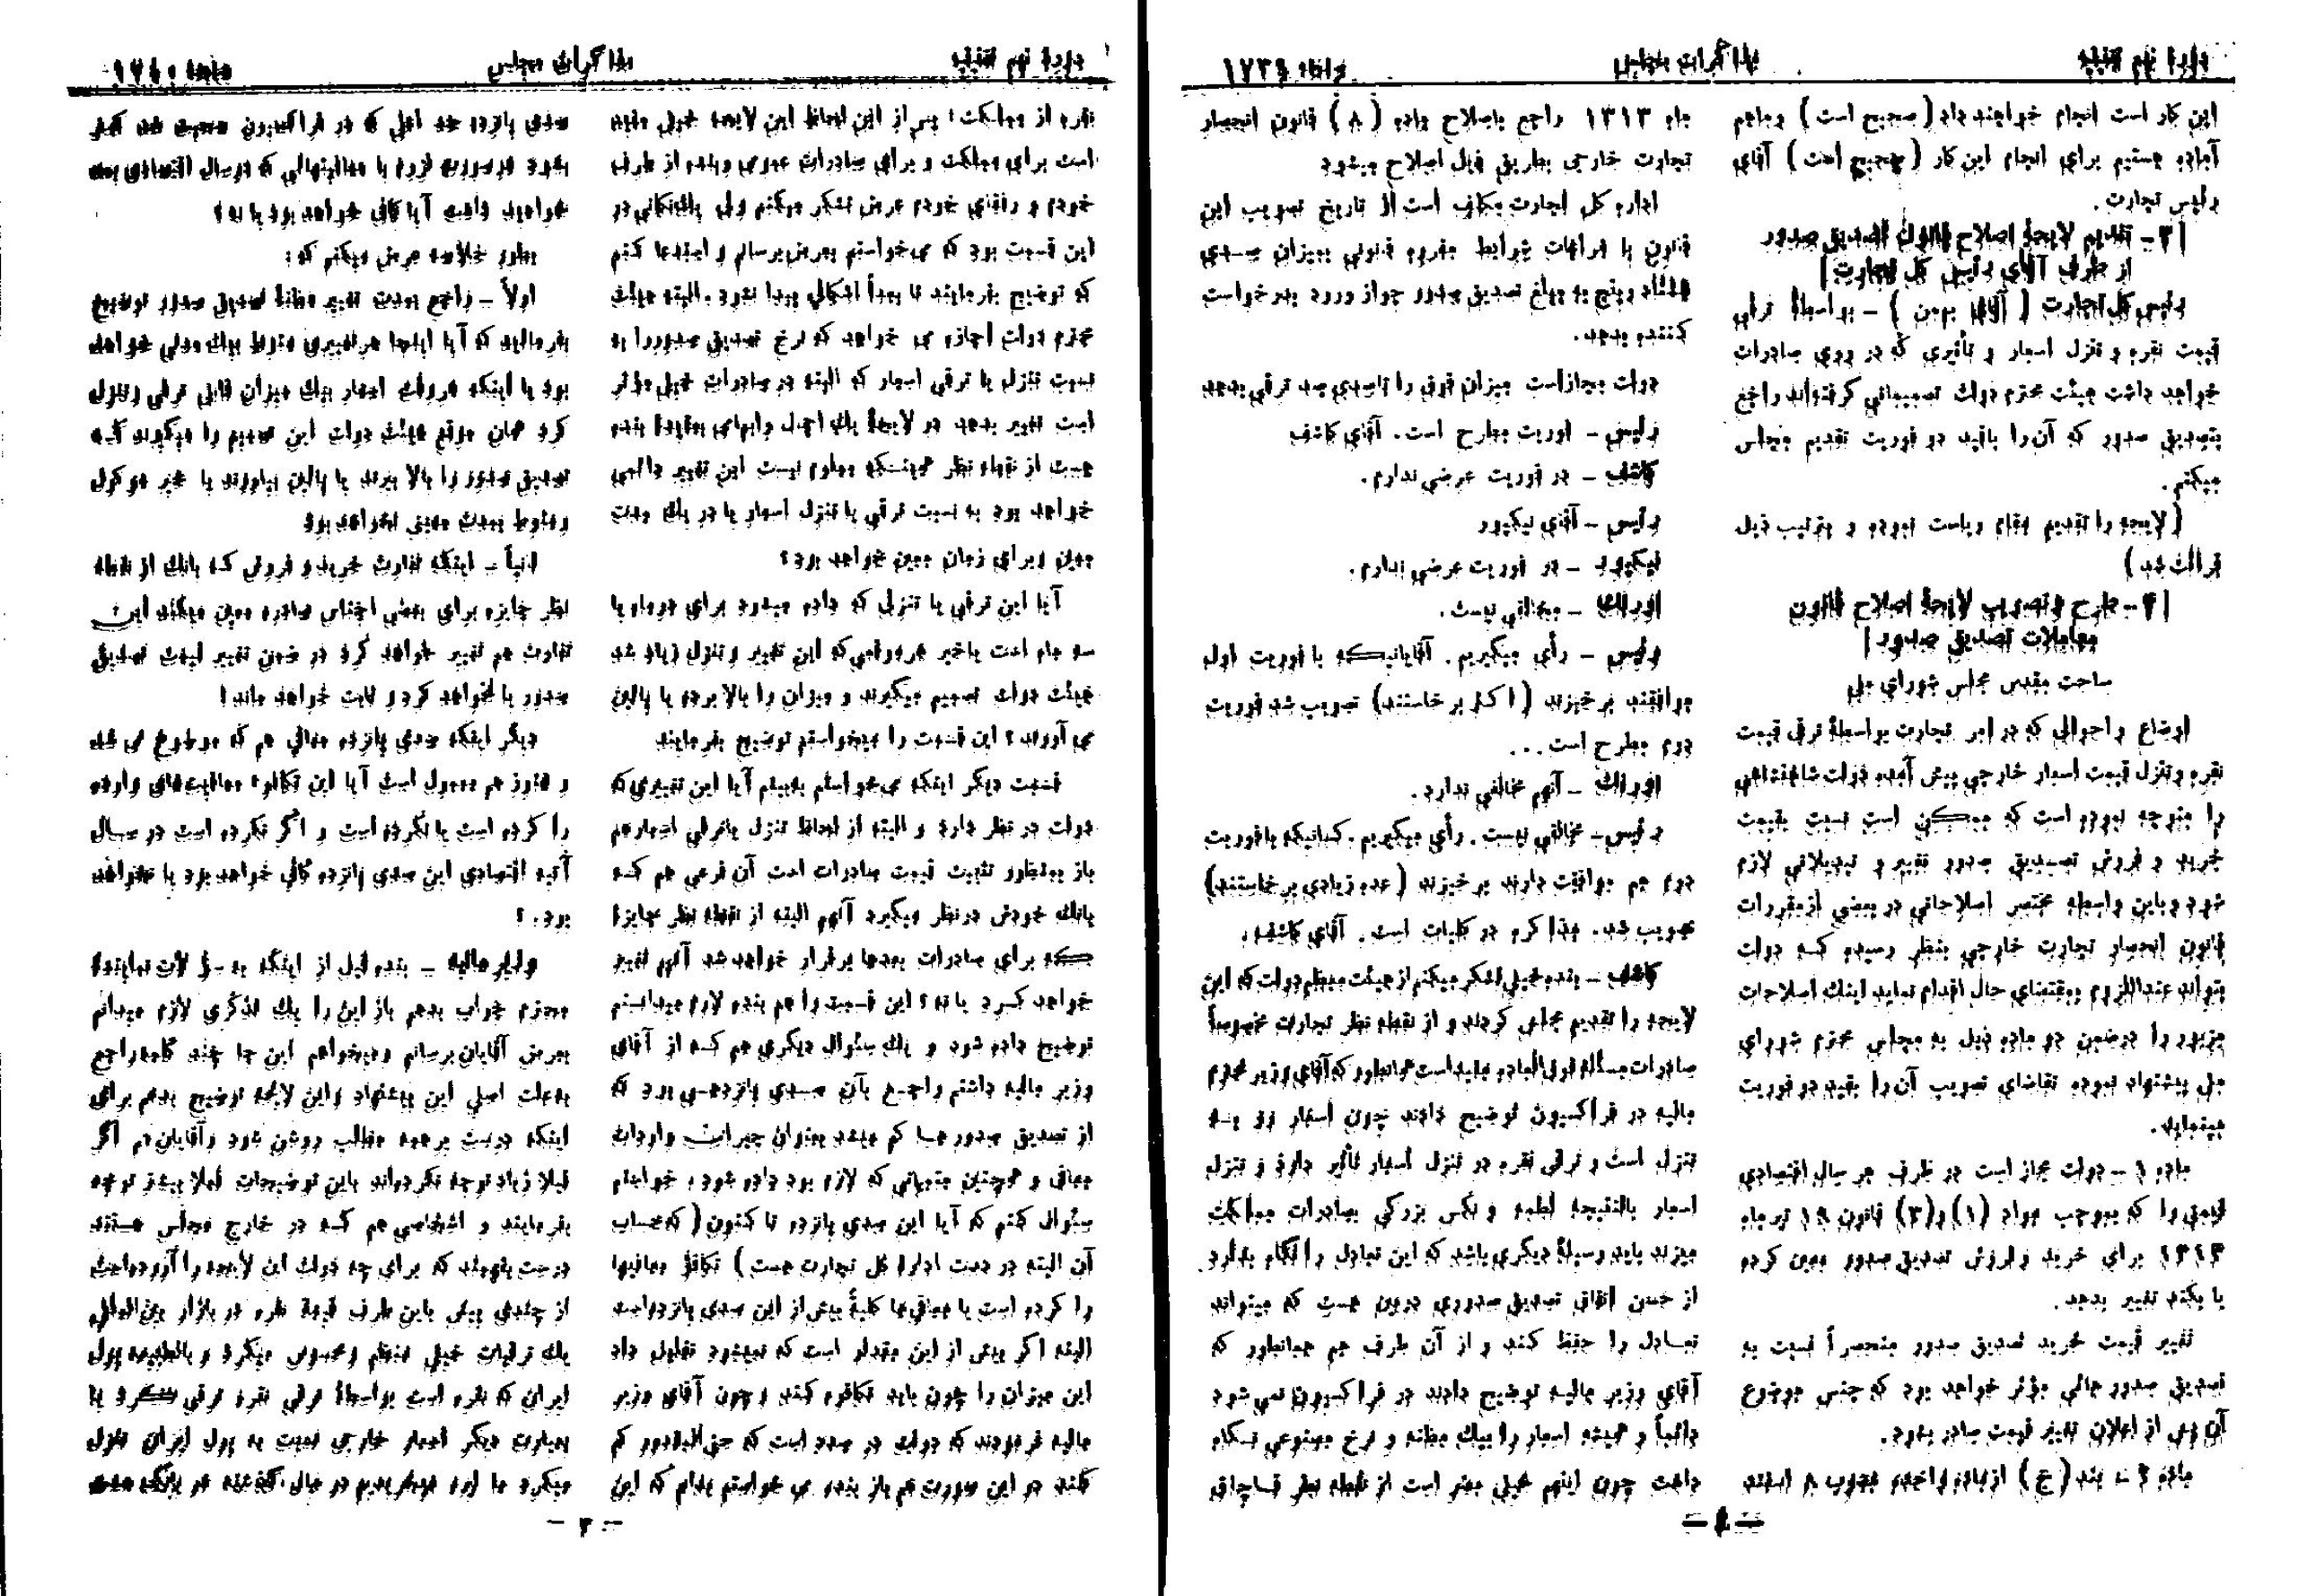 دوره نهم تقنینیه
مذاکرات مجلس
صفحه ۱۷۳۹
این کار است انجام خواهند داد (صحیح است) و ماهم
آماده هستیم برای انجام این کار (صحیح است) آقای
رئیس تجارت.
[۳ - تقدیم لایحهٔ اصلاح قانون تصدیق صدور
از طرف آقای رئیس کل تجارت]
رئیس کل تجارت (آقای بهمن) - بواسطهٔ ترقی
قیمت نقره و تنزل اسعار و تأثیری که در روی صادرات
خواهد داشت هیئت محترم دولت تصمیماتی گرفته‌اند راجع
بتصدیق صدور که آن را باقید دو فوریت تقدیم مجلس
میکنم.
(لایحه را تقدیم مقام ریاست نموده و بترتیب ذیل
قرائت شد)
[۴ - طرح و تصویب لایحهٔ اصلاح قانون
معاملات تصدیق صدور]
ساحت مقدس مجلس شورای ملی
اوضاع و احوالی که در امر تجارت بواسطهٔ ترقی قیمت
نقره و تنزل قیمت اسعار خارجی پیش آمده دولت شاهنشاهی
را متوجه نموده است که ممکن است نسبت بقیمت
خرید و فروش تصدیق صدور تغییر و تبدیلاتی لازم
شود و باین واسطه مختصر اصلاحاتی در بعضی از مقررات
قانون انحصار تجارت خارجی بنظر رسیده که دولت
بتواند عنداللزوم بمقتضای حال اقدام نماید اینک اصلاحات
مزبور را درضمن دو ماده ذیل به مجلس محترم شورای
ملی پیشنهاد نموده تقاضای تصویب آن را بقید دو فوریت
مینماید.
ماده ۱ - دولت مجاز است در ظرف هر سال اقتصادی
قیمتی را که بموجب مواد (۱) و (۳) قانون ۱۹ تیر ماه
برای خرید و فروش تصدیق صدور معین کرده
یا بکند تغییر بدهد.
تغییر قیمت خرید تصدیق صدور منحصراً نسبت به
تصدیق صدورهائی مؤثر خواهد بود که جنس موضوع
آن پس از اعلان تغییر قیمت صادر بشود.
ماده ۲ - بند (ج) از ماده واحده مصوب ۸ اسفند
ماه ۱۳۱۳ راجع باصلاح ماده (۸) قانون انحصار
تجارت خارجی بطریق ذیل اصلاح میشود
اداره کل تجارت مکلف است از تاریخ تصویب این
قانون با مراعات شرایط مقرره قانونی بمیزان صدی
هشتاد و پنج به مبلغ تصدیق صدور جواز ورود بدرخواست
کننده بدهد.
دولت مجاز است میزان فوق را تاصدی صد ترقی بدهد
رئیس - فوریت مطرح است. آقای کاشف
کاشف - در فوریت عرضی ندارم.
رئیس - آقای نیکپور
نیکپور - در فوریت عرضی ندارم.
اورنگ - مخالفی نیست.
رئیس - رأی میگیریم. آقایانیکه با فوریت اول
موافقند برخیزند (اکثر برخاستند) تصویب شد فوریت
دوم مطرح است...
اورنگ - آنهم مخالفی ندارد.
رئیس - مخالفی نیست. رأی میگیریم. کسانیکه بافوریت
دوم هم موافقت دارند برخیزند (عده زیادی برخاستند)
تصویب شد. مذاکره در کلیات است. آقای کاشف.
کاشف - بنده خیلی تشکر میکنم از هیئت معظم دولت که این
لایحه را تقدیم مجلس کردند و از نقطه نظر تجارت مخصوصاً
صادرات مسأله فوق‌العاده مفید است همانطور که آقای وزیر محترم
مالیه در فراکسیون توضیح دادند چون اسعار رو به
تنزل است و ترقی نقره در تنزل اسعار تأثیر دارد و تنزل
اسعار بالنتیجه لطمه و نکس بزرگی بصادرات مملکت
میزند باید وسیلهٔ دیگری باشد که این تعادل را نگاه بدارد
از حسن اتفاق تصدیق صدوری دربین هست که میتواند
تعادل را حفظ کند و از آن طرف هم همانطور که
آقای وزیر مالیه توضیح دادند در فراکسیون نمی شود
دائماً و همیشه اسعار را بیک مظنه و نرخ مصنوعی نگاه
داشت چون اینهم خیلی مضر است از نقطه نظر قاچاق
دوره نهم تقنینیه
مذاکرات مجلس
صفحه ۱۷۴۰
نقره از مملکت؛ پس از این لحاظ این لایحه خیلی مفید
است برای مملکت و برای صادرات عمومی و بنده از طرف
خودم و رفقای خودم عرض تشکر میکنم ولی یک‌نکاتی در
این قسمت بود که می‌خواستم بعرض برسانم و استدعا کنم
که توضیح بفرمایند تا بعداً اشکالی پیدا نشود. البته هیئت
محترم دولت اجازه می خواهد که نرخ تصدیق صدور را به
نسبت تنزل یا ترقی اسعار که البته در صادرات خیلی مؤثر
است تغییر بدهد در لایحهٔ یک اجمال وابهامی بعقیدهٔ بنده
هست از نقطه نظر اینکه معلوم نیست این تغییر دائمی
خواهد بود به نسبت ترقی یا تنزل اسعار یا در یک مدت
معین و برای زمان معین خواهد بود؟
آیا این ترقی یا تنزلی که داده میشود برای دوماه یا
سه ماه است یاخیر هر موقعی‌که این تغییر و تنزل زیاد شد
هیئت دولت تصمیم میگیرند و میزان را بالا برده یا پائین
می آورند؟ این قسمت را میخواستم توضیح بفرمایند
قسمت دیگر اینکه می‌خواستم بفهمم آیا این تغییری که
دولت در نظر دارد و البته از لحاظ تنزل یاترقی اسعارهم
باز بمنظور تثبیت قیمت صادرات است آن فرعی هم که
بانک خودش درنظر میگیرد آنهم البته از نقطه نظر جایزهٔ
که برای صادرات بعدها برقرار خواهد شد آنهم تغییر
خواهد کرد یا نه؟ این قسمت را هم بنده لازم میدانستم
توضیح داده شود و یک سئوال دیگری هم که از آقای
وزیر مالیه داشتم راجع بآن صدی پانزدهی بود که
از تصدیق صدورها کم میشد بعنوان جبران واردات
معافی و همچنین متوفائی که لازم بود داده شود، خواستم
سئوال کنم که آیا این صدی پانزده تا کنون (که حساب
آن البته در دست ادارهٔ کل تجارت هست) تکافؤ معافیها
را کرده است یا معافی‌ها کلیةً بیش از این صدی پانزده است
البته اگر بیش از این مقدار است که نمیشود تقلیل داد
این میزان را چون باید تکافوء کند و چون آقای وزیر
مالیه فرمودند که دولت در صدد است که حتی‌المقدور کم
کنند در این صورت هم باز بنده می خواستم بدانم که این
صدی پانزده حد اقلی که در فراکسیون صحبت شد کمتر
بشود در صورت لزوم با معافیتهائی که در سال اقتصادی بعد
خواهید داشت آیا کافی خواهد بود یا نه؟
بطور خلاصه عرض میکنم که:
اولاً - راجع بمدت تغییر مظنهٔ تصدیق صدور توضیح
بفرمائید که آیا اینها هر تغییری منوط بیک مدتی خواهد
بود یا اینکه هروقت اسعار بیک میزان قابلی ترقی و تنزل
کرد همان موقع هیئت دولت این تصمیم را میگیرند که
تصدیق صدور را بالا ببرند یا پائین بیاورند یا خیر موکول
و منوط بمدت معین نخواهد بود
ثانیاً - اینکه تفاوت خرید و فروش که بانک از نقطه
نظر جایزه برای بعضی اجناس صادره معین میکند این
تفاوت هم تغییر خواهد کرد در ضمن تغییر قیمت تصدیق
صدور یا نخواهد کرد و ثابت خواهد ماند؟
دیگر اینکه صدی پانزده معافی هم که موضوع می شد
و هنوز هم معمول است آیا این تکافوء معافیت‌های وارده
را کرده است یا نکرده است و اگر نکرده است در سال
آتیه اقتصادی این صدی پانزده کافی خواهد بود یا نخواهد
بود.؟
وزیر مالیه - بنده قبل از اینکه به سؤالات نمایندهٔ
محترم جواب بدهم باز این را یک تذکری لازم میدانم
بعرض آقایان برسانم و میخواهم این جا چند کلمه راجع
بعلت اصلی این پیشنهاد و این لایحه توضیح بدهم برای
اینکه درست بر همه مطالب روشن شود و آقایان هم اگر
قبلا زیاد توجه نکرده‌اند باین توضیحات فعلا بیشتر توجه
بفرمایند و اشخاصی هم که در خارج مجلس هستند
درست بفهمند که برای چه دولت این لایحه را آورده است
از چندی پیش باین طرف قیمت نقره در بازار بین‌المللی
یک ترقیات خیلی منظم و محسوس میکرد و بالطبیعه پول
ایران که نقره است بواسطهٔ ترقی نقره ترقی میکرد یا
بعبارت دیگر اسعار خارجی نسبت به پول ایران تنزل
میکرد ما
- ۳ -